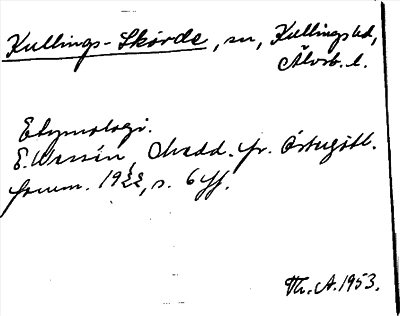 Kullings-Skövde, sn, Kullings hd,
Älvsb. l.
Etymologi.
E. Wessén, Medd. fr. Östergötl.
fornm. 1922, s. 6 ff.
Th. A. 1953.